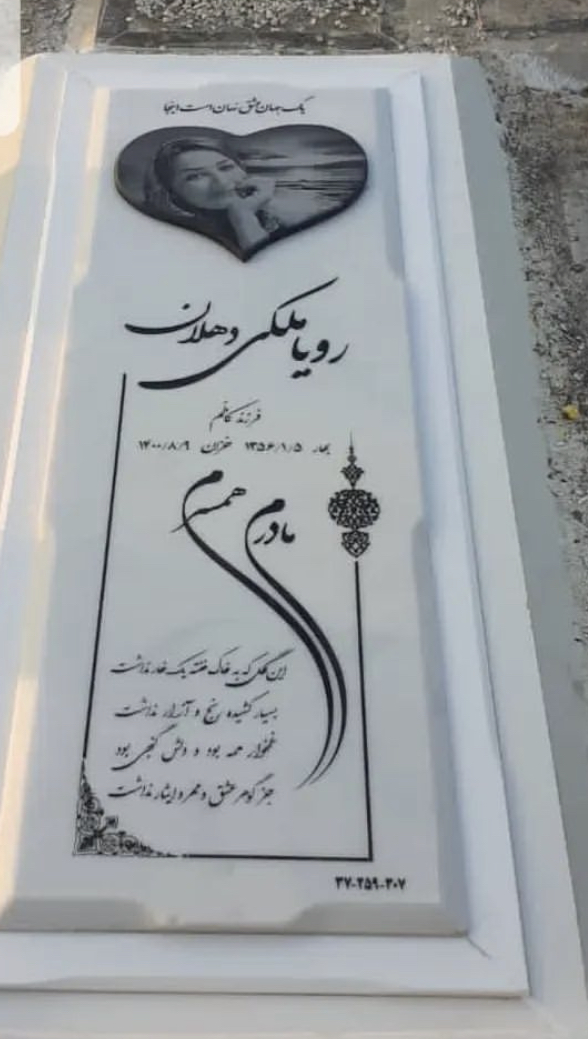 یک جهان عشق نهان است اینجا
رویا ملکی دهلان
فرزند کاظم
بهار ۱۳۵۶/۱/۵ خزان ۱۴۰۰/۸/۹
مادرم همسرم
این گل که به خاک خفته یک خار نداشت
بسیار کشیده رنج و آزار نداشت
غمخوار همه بود و دلش گنجی بود
جز گوهر عشق و مهر و ایثار نداشت
۳۷-۲۵۹-۳۰۷